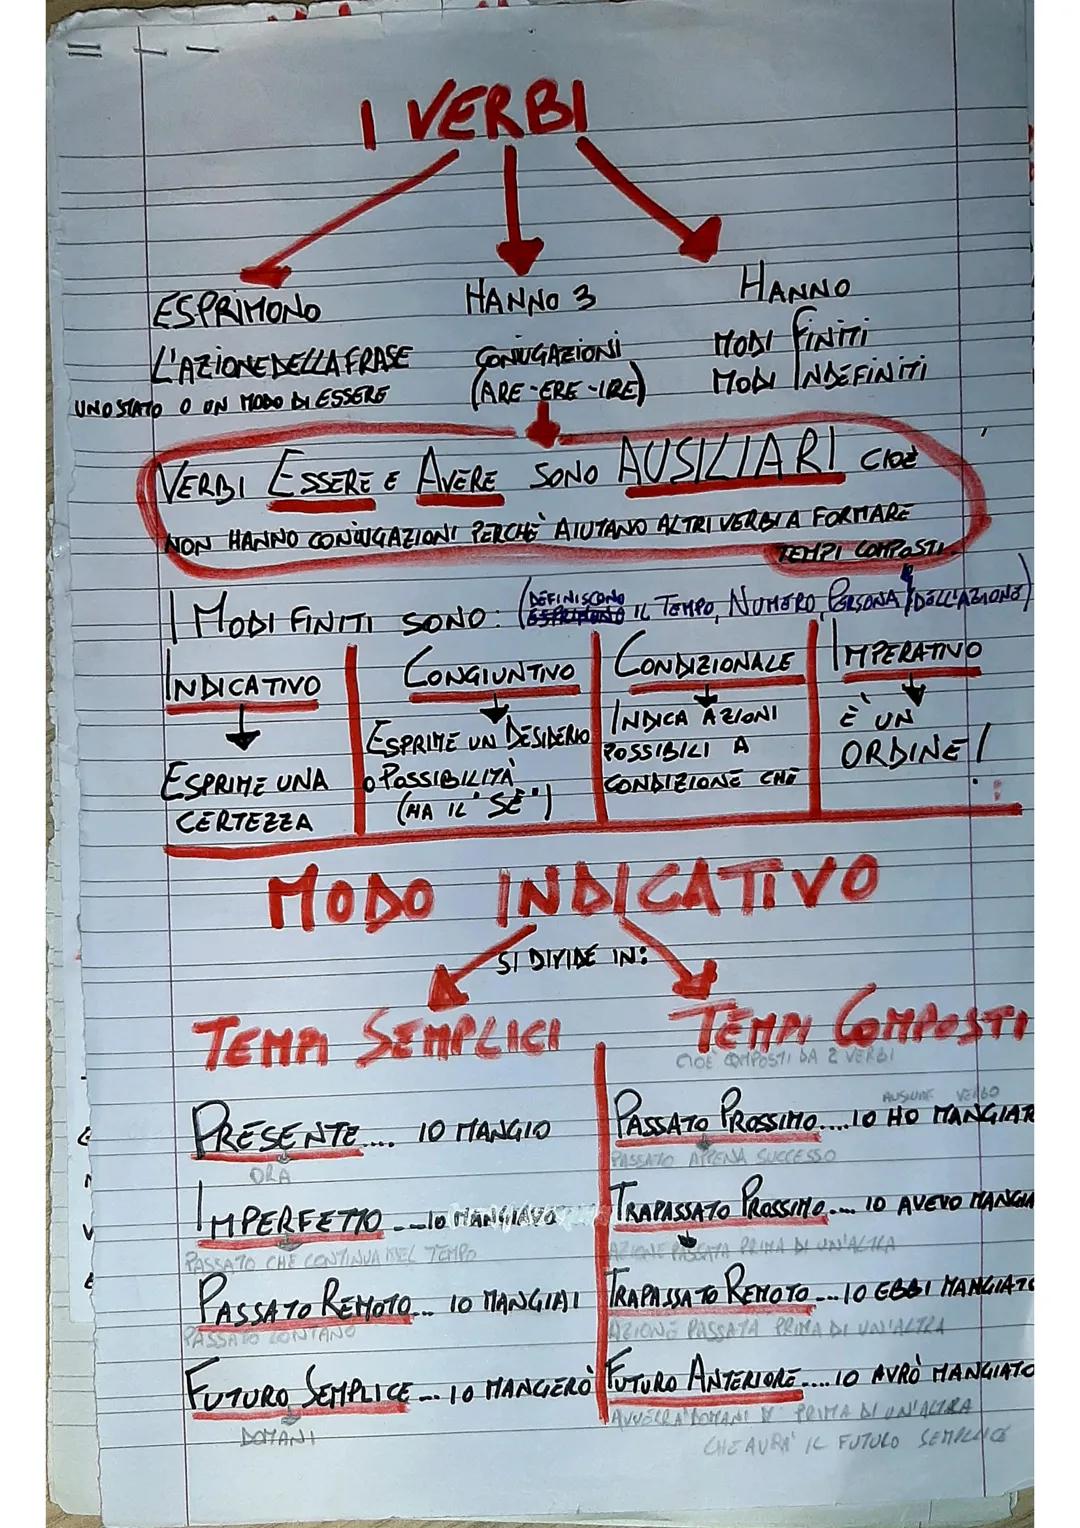 I VERBI
ESPRIMONO
L'AZIONE DELLA FRASE
UNO STATO O UN MODO DI ESSERE
HANNO 3
CONIUGAZIONI
(ARE-ERE-IRE)
HANNO
MODI FINITI
MODI INDEFINITI
VERBI ESSERE E AVERE SONO AUSILIARI CIOÈ
NON HANNO CONIUGAZIONI PERCHÈ AIUTANO ALTRI VERBI A FORMARE
TEMPI COMPOSTI.
I MODI FINITI SONO: (DEFINISCONO IL TEMPO, NUMERO, PERSONA DELL'AZIONE)
INDICATIVO
ESPRIME UNA
CERTEZZA
CONGIUNTIVO
ESPRIME UN DESIDERIO
O POSSIBILITÀ
(HA IL "SE")
CONDIZIONALE
INDICA AZIONI
POSSIBILI A
CONDIZIONE CHE
IMPERATIVO
È UN
ORDINE!
MODO INDICATIVO
SI DIVIDE IN:
TEMPI SEMPLICI
PRESENTE.... IO MANGIO
ORA
IMPERFETTO ...IO MANGIAVO
PASSATO CHE CONTINUA NEL TEMPO
PASSATO REMOTO... IO MANGIAI
PASSATO LONTANO
FUTURO SEMPLICE ... IO MANGERÒ
DOMANI
TEMPI COMPOSTI
CIOÈ COMPOSTI DA 2 VERBI
VERBO
PASSATO PROSSIMO....IO HO MANGIAT
PASSATO APPENA SUCCESSO
TRAPASSATO PROSSIMO.... IO AVEVO MANGIA
AZIONE PASSATA PRIMA DI UN'ALTRA
TRAPASSATO REMOTO ...IO EBBI MANGIATO
AZIONE PASSATA PRIMA DI UN'ALTRA
FUTURO ANTERIORE....IO AVRÒ MANGIATO
AVVERRA' DOMANI PRIMA DI UN'ALTRA
CHE AVRA' IL FUTURO SEMPLICE